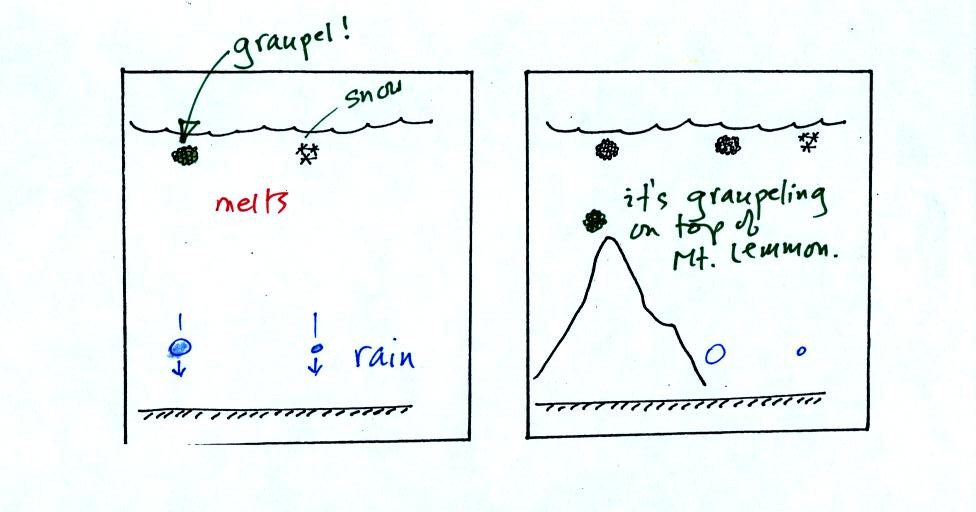 graupel!
snow
melts
rain
it's graupeling
on top of
Mt. Lemmon.